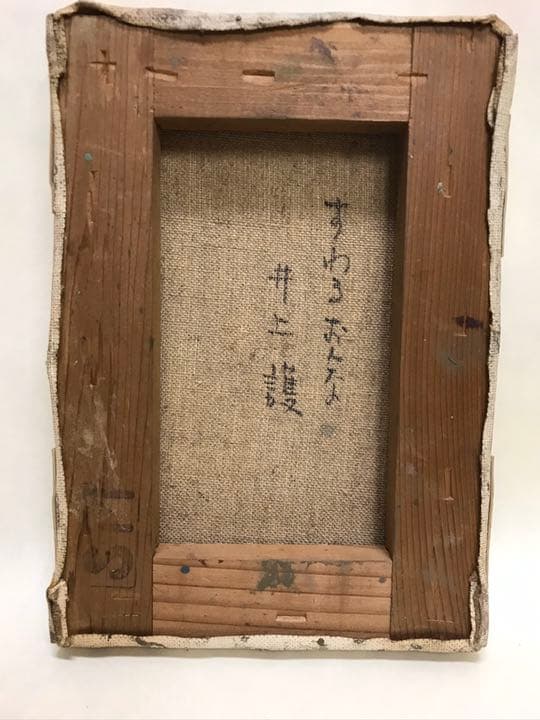 すわるおんな
井上護